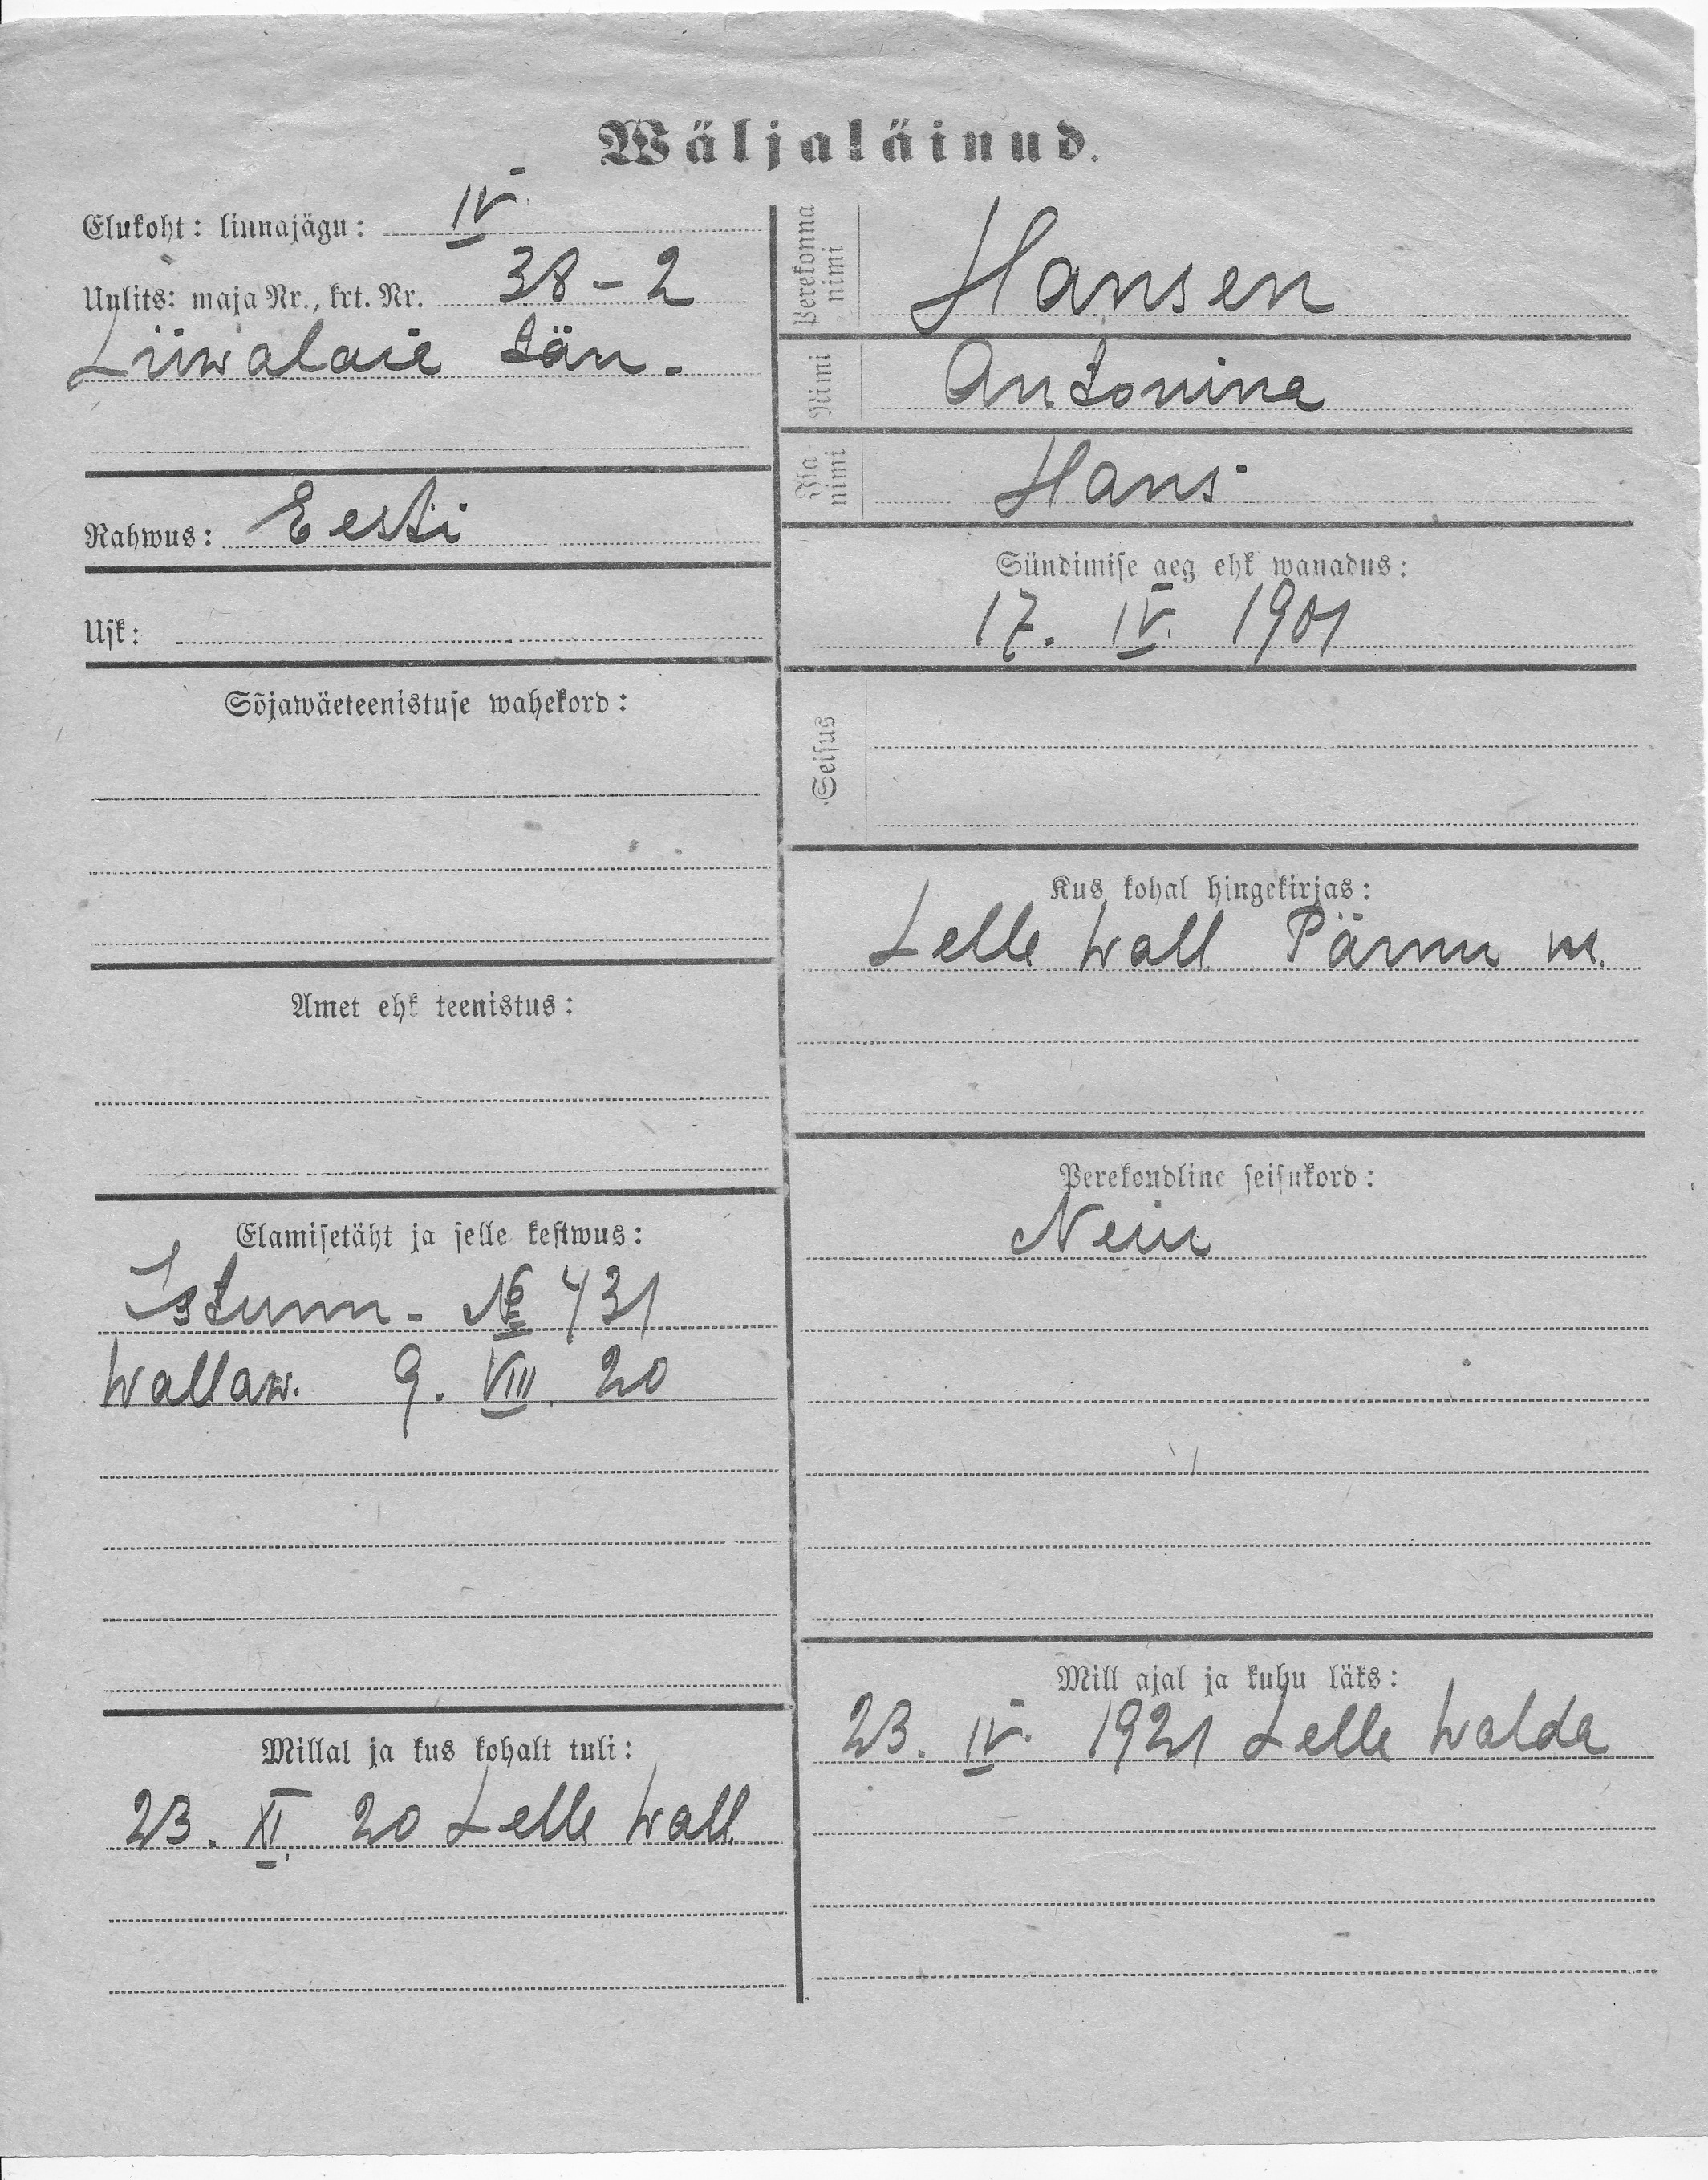 Wäljaläinud.
Elukoht: linnajägu: IV
Uulits: maja Nr., krt. Nr. 38-2
Liiwalaia tän.
Rahwus: Eesti
Usk:
Sõjawäeteenistuse wahekord:
Amet ehk teenistus:
Elamisetäht ja selle kestwus:
Istunn. № 431
Wallaw. 9. VIII 20
Millal ja kus kohalt tuli:
23. XI. 20 Lelle Wall
Perekonna nimi Hansen
Nimi Antonina
Isa nimi Hans
Sündimise aeg ehk wanadus:
17. IV. 1901
Seisus
Kus kohal hingekirjas:
Lelle Wall Pärnu m.
Perekondline seisukord:
Neiu
Mill ajal ja kuhu läks:
23. IV. 1921 Lelle Walda